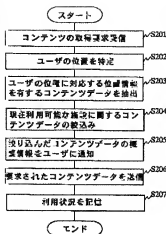 スタート
コンテンツの取得要求受信
S201
ユーザの位置を特定
S202
ユーザの位置に対応する位置情報
を有するコンテンツデータを抽出
S203
現在利用可能な施設に関するコン
テンツデータの絞込み
S204
絞り込んだコンテンツデータの概
要情報をユーザに通知
S205
要求されたコンテンツデータを送信
S206
利用状況を記憶
S207
エンド